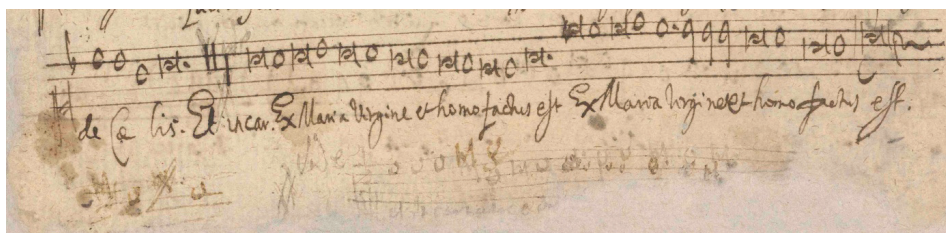 de Cæ lis. Et incar. Ex Maria Virgine et homo factus est Ex Maria Virgine et homo factus est.